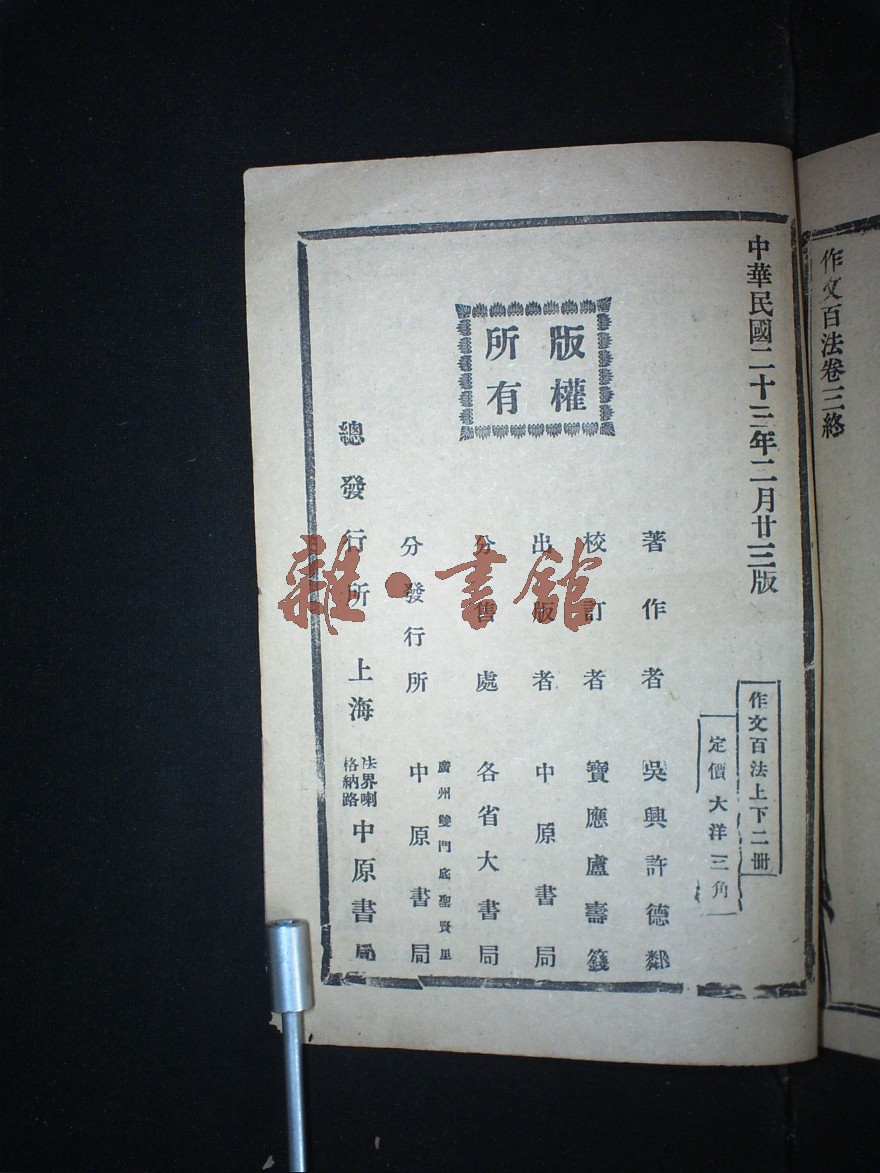 作文百法卷三終
中華民國二十三年二月廿三版
作文百法上下二册
定價大洋三角
版權
所有
著作者 吳興許德鄰
校訂者 寶應盧壽籛
出版者 中原書局
分售處 各省大書局
廣州雙門底聖賢里
分發行所 中原書局
總發行所 上海 法界喇格納路 中原書局
雜·書館